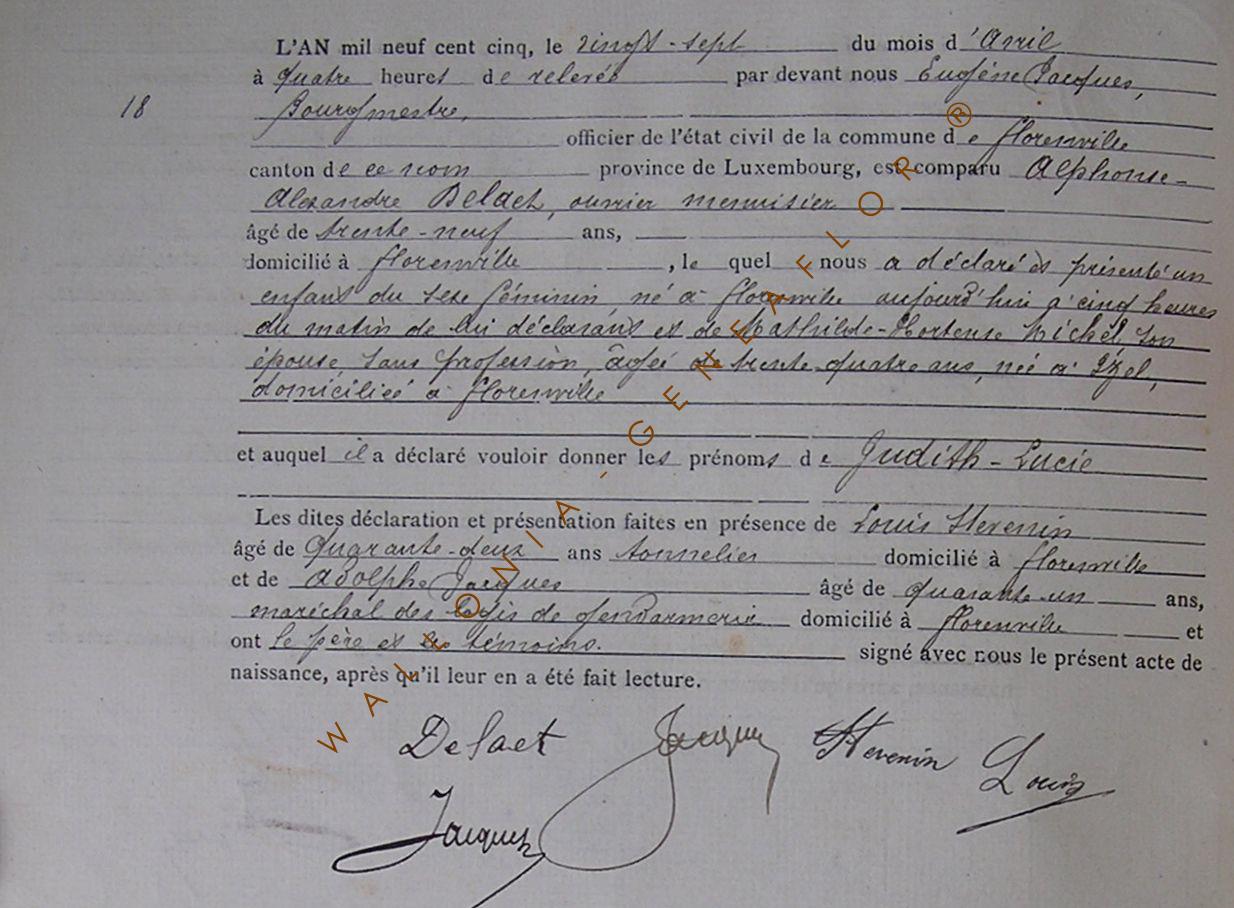 L'AN mil neuf cent cinq, le vingt-sept du mois d'Avril
à quatre heures de relevée par devant nous Eugène Jacques,
18
Bourgmestre,
officier de l'état civil de la commune de Florenville
canton de ce nom province de Luxembourg, est comparu Alphonse-
Alexandre Delaet, ouvrier menuisier
âgé de trente-neuf ans,
domicilié à Florenville, le quel nous a déclaré et présenté un
enfant du sexe féminin né à Florenville aujourd'hui à cinq heures
du matin de lui déclarant et de Mathilde-Hortense Michel, son
épouse, sans profession, âgée de trente-quatre ans, née à Izel,
domiciliée à Florenville
et auquel il a déclaré vouloir donner les prénoms de Judith-Lucie
Les dites déclaration et présentation faites en présence de Louis Hevenin
âgé de quarante-deux ans tonnelier domicilié à Florenville
et de Adolphe Jacques âgé de quarante-un ans,
maréchal des logis de gendarmerie domicilié à Florenville et
ont le père et les témoins. signé avec nous le présent acte de
naissance, après qu'il leur en a été fait lecture.
Delaet Jacques Hevenin Louis
Jacques
WALLONIA-GENEAFLOR®